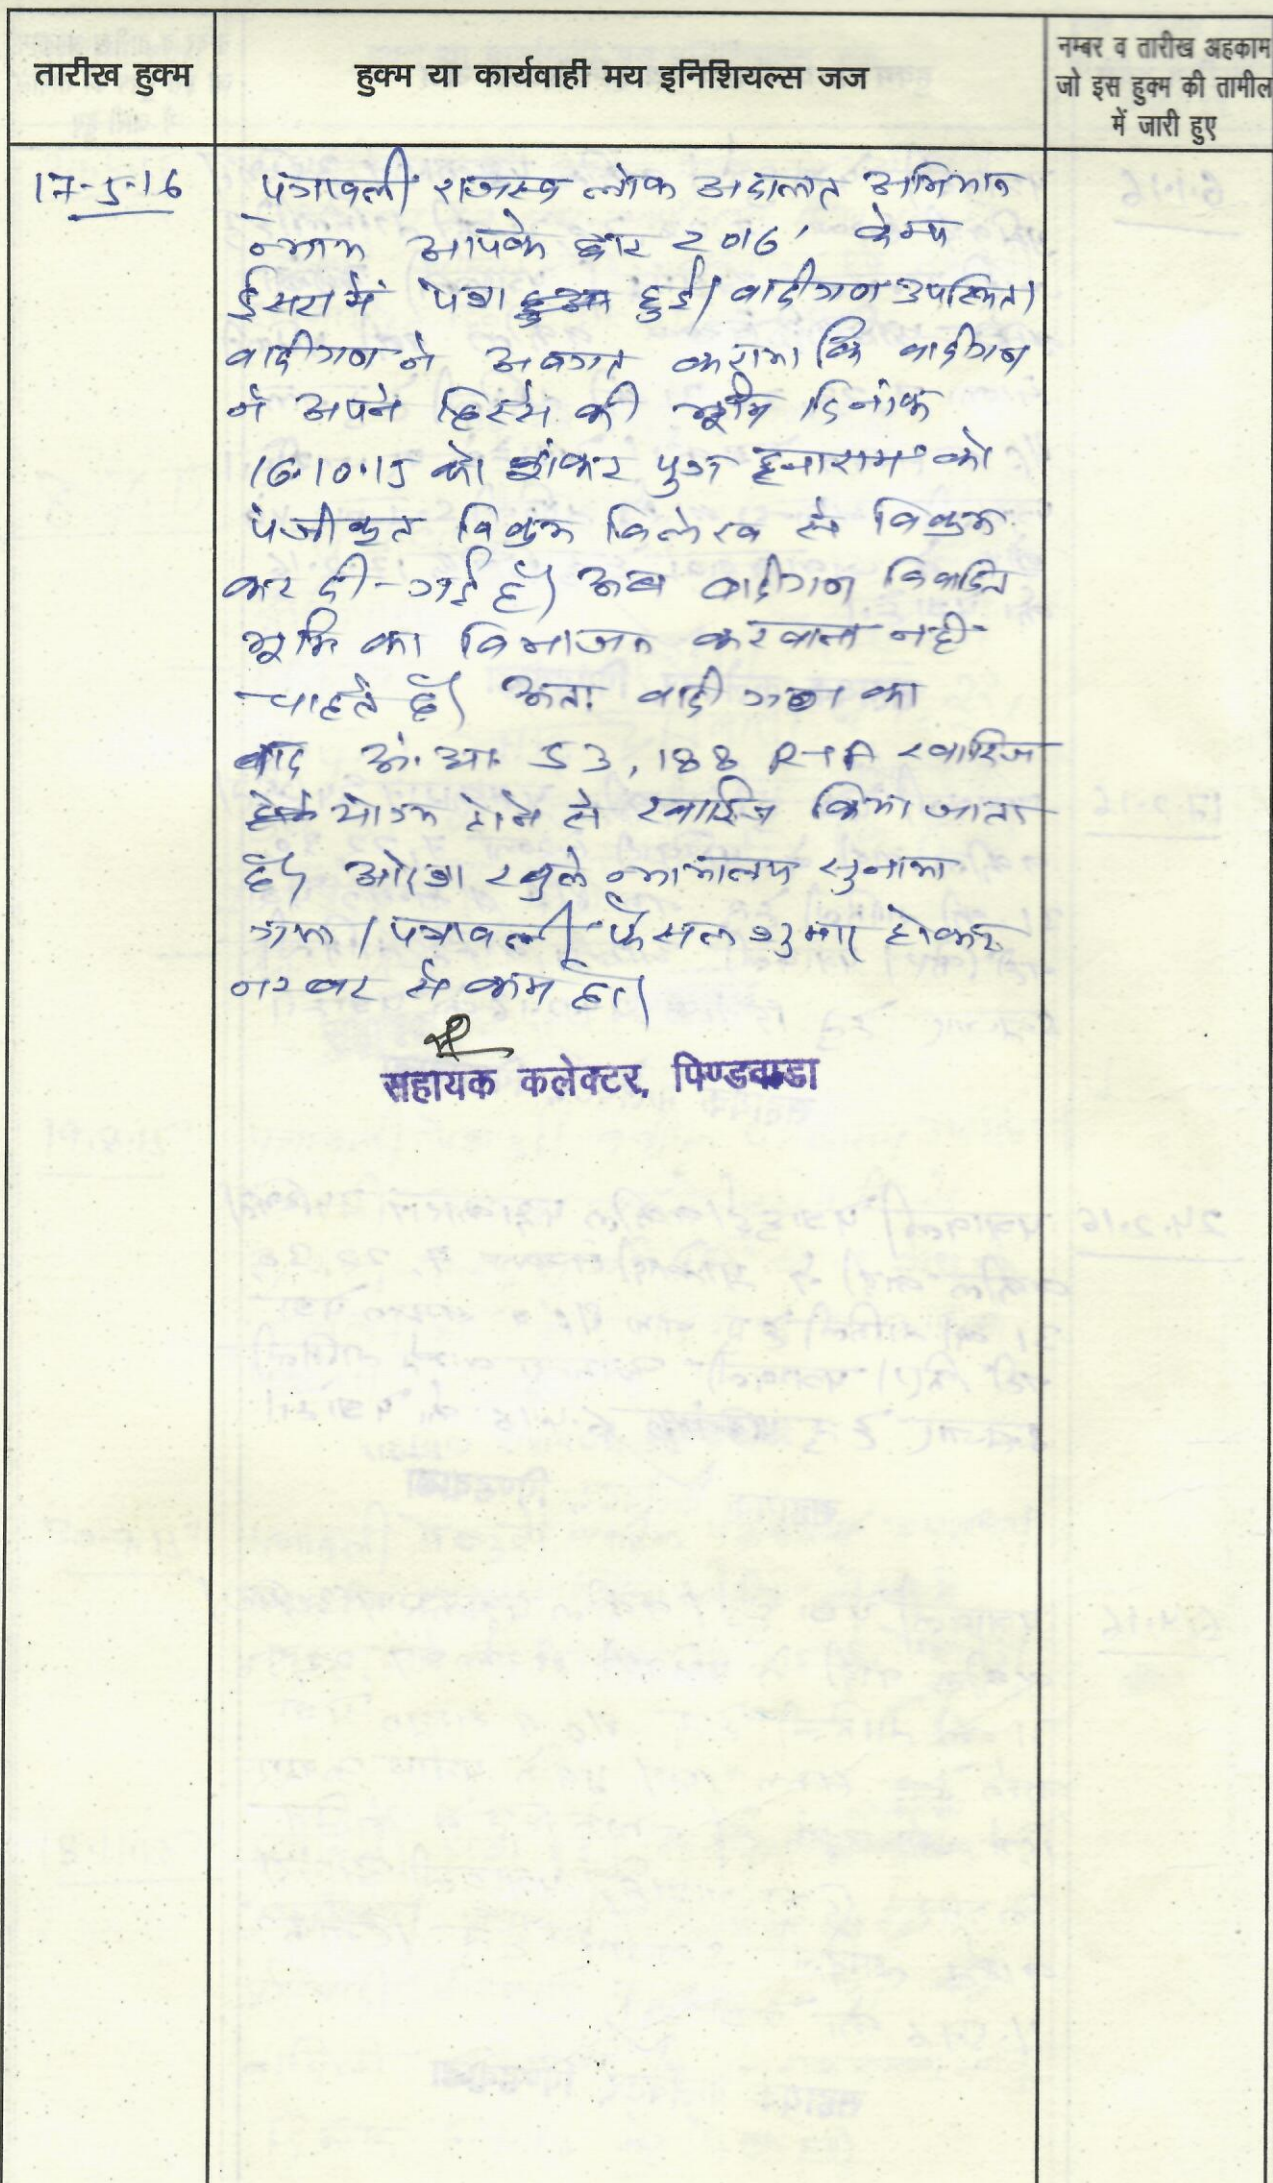 तारीख हुक्म
हुक्म या कार्यवाही मय इनिशियल्स जज
नम्बर व तारीख अहकाम
जो इस हुक्म की तामील
में जारी हुए
17-5-16
पत्रावली राजस्व लोक अदालत अभियान
न्याय आपके द्वार 2016' केम्प
ईसरा में पेश हुई। वादीगण उपस्थित।
वादीगण ने अवगत कराया कि वादीगण
ने अपने हिस्से की भूमि दिनांक
16.10.15 को शंकर पुत्र हनाराम को
पंजीकृत विक्रय विलेख से विक्रय
कर दी गई है। अब वादीगण विवादित
भूमि का विभाजन करवाना नही
चाहते है। अतः वादी गण का
वाद अं. धा. 53, 188 RTA खारिज
योग्य होने से खारिज किया जाता
है। आदेश खुले न्यायालय सुनाया
गया। पत्रावली फैसल शुमार होकर
नम्बर से कम हो।
सहायक कलेक्टर, पिण्डवाडा